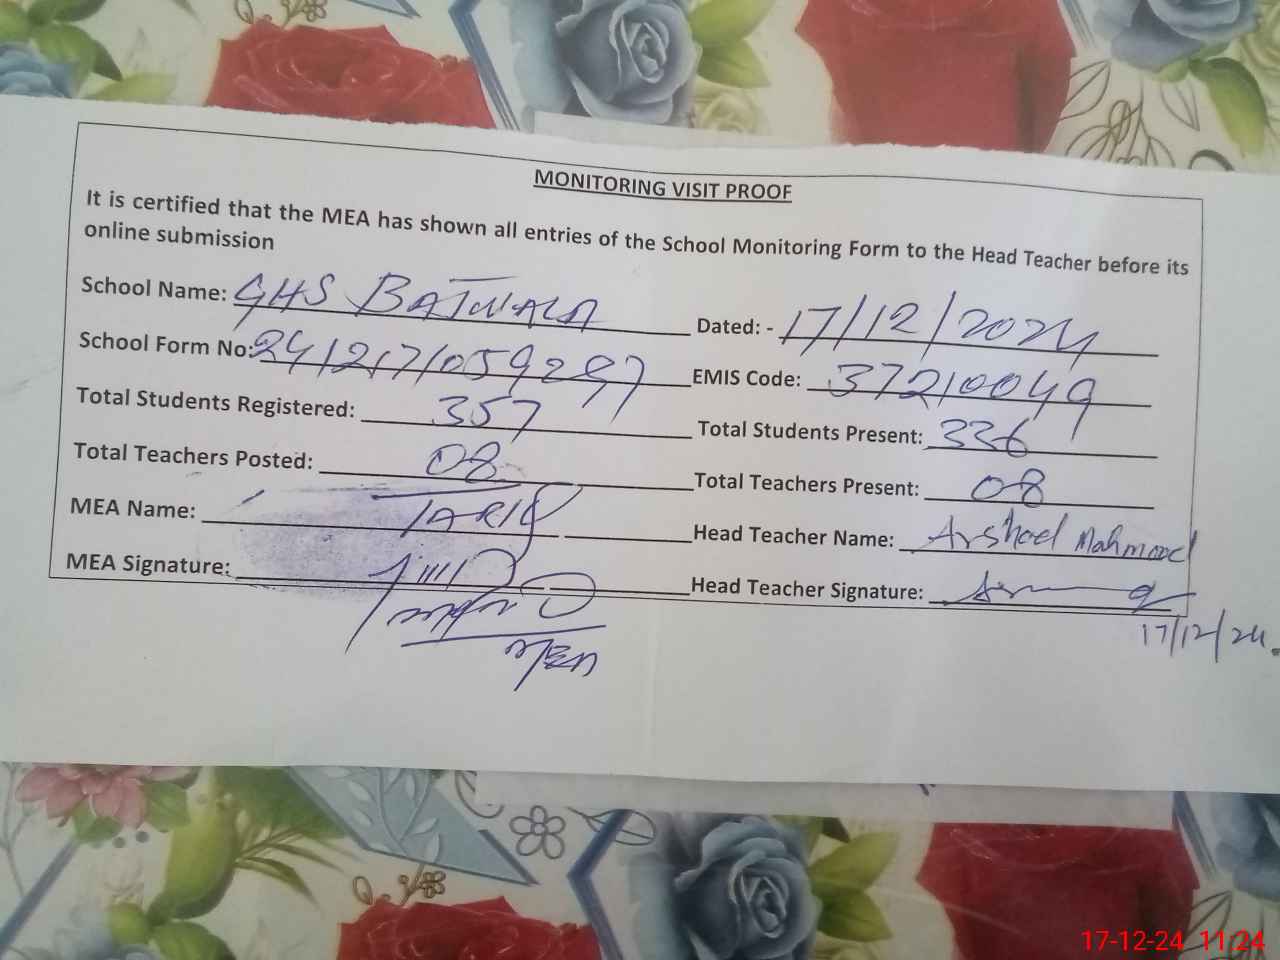 MONITORING VISIT PROOF
It is certified that the MEA has shown all entries of the School Monitoring Form to the Head Teacher before its
online submission
School Name: GHS BATWALA Dated: - 17/12/2024
School Form No: 241217/059297 EMIS Code: 37210049
Total Students Registered: 357 Total Students Present: 336
Total Teachers Posted: 08 Total Teachers Present: 08
MEA Name: TARIQ Head Teacher Name: Arshad Mahmood
MEA Signature: Head Teacher Signature:
17/12/24.
17-12-24 11:24